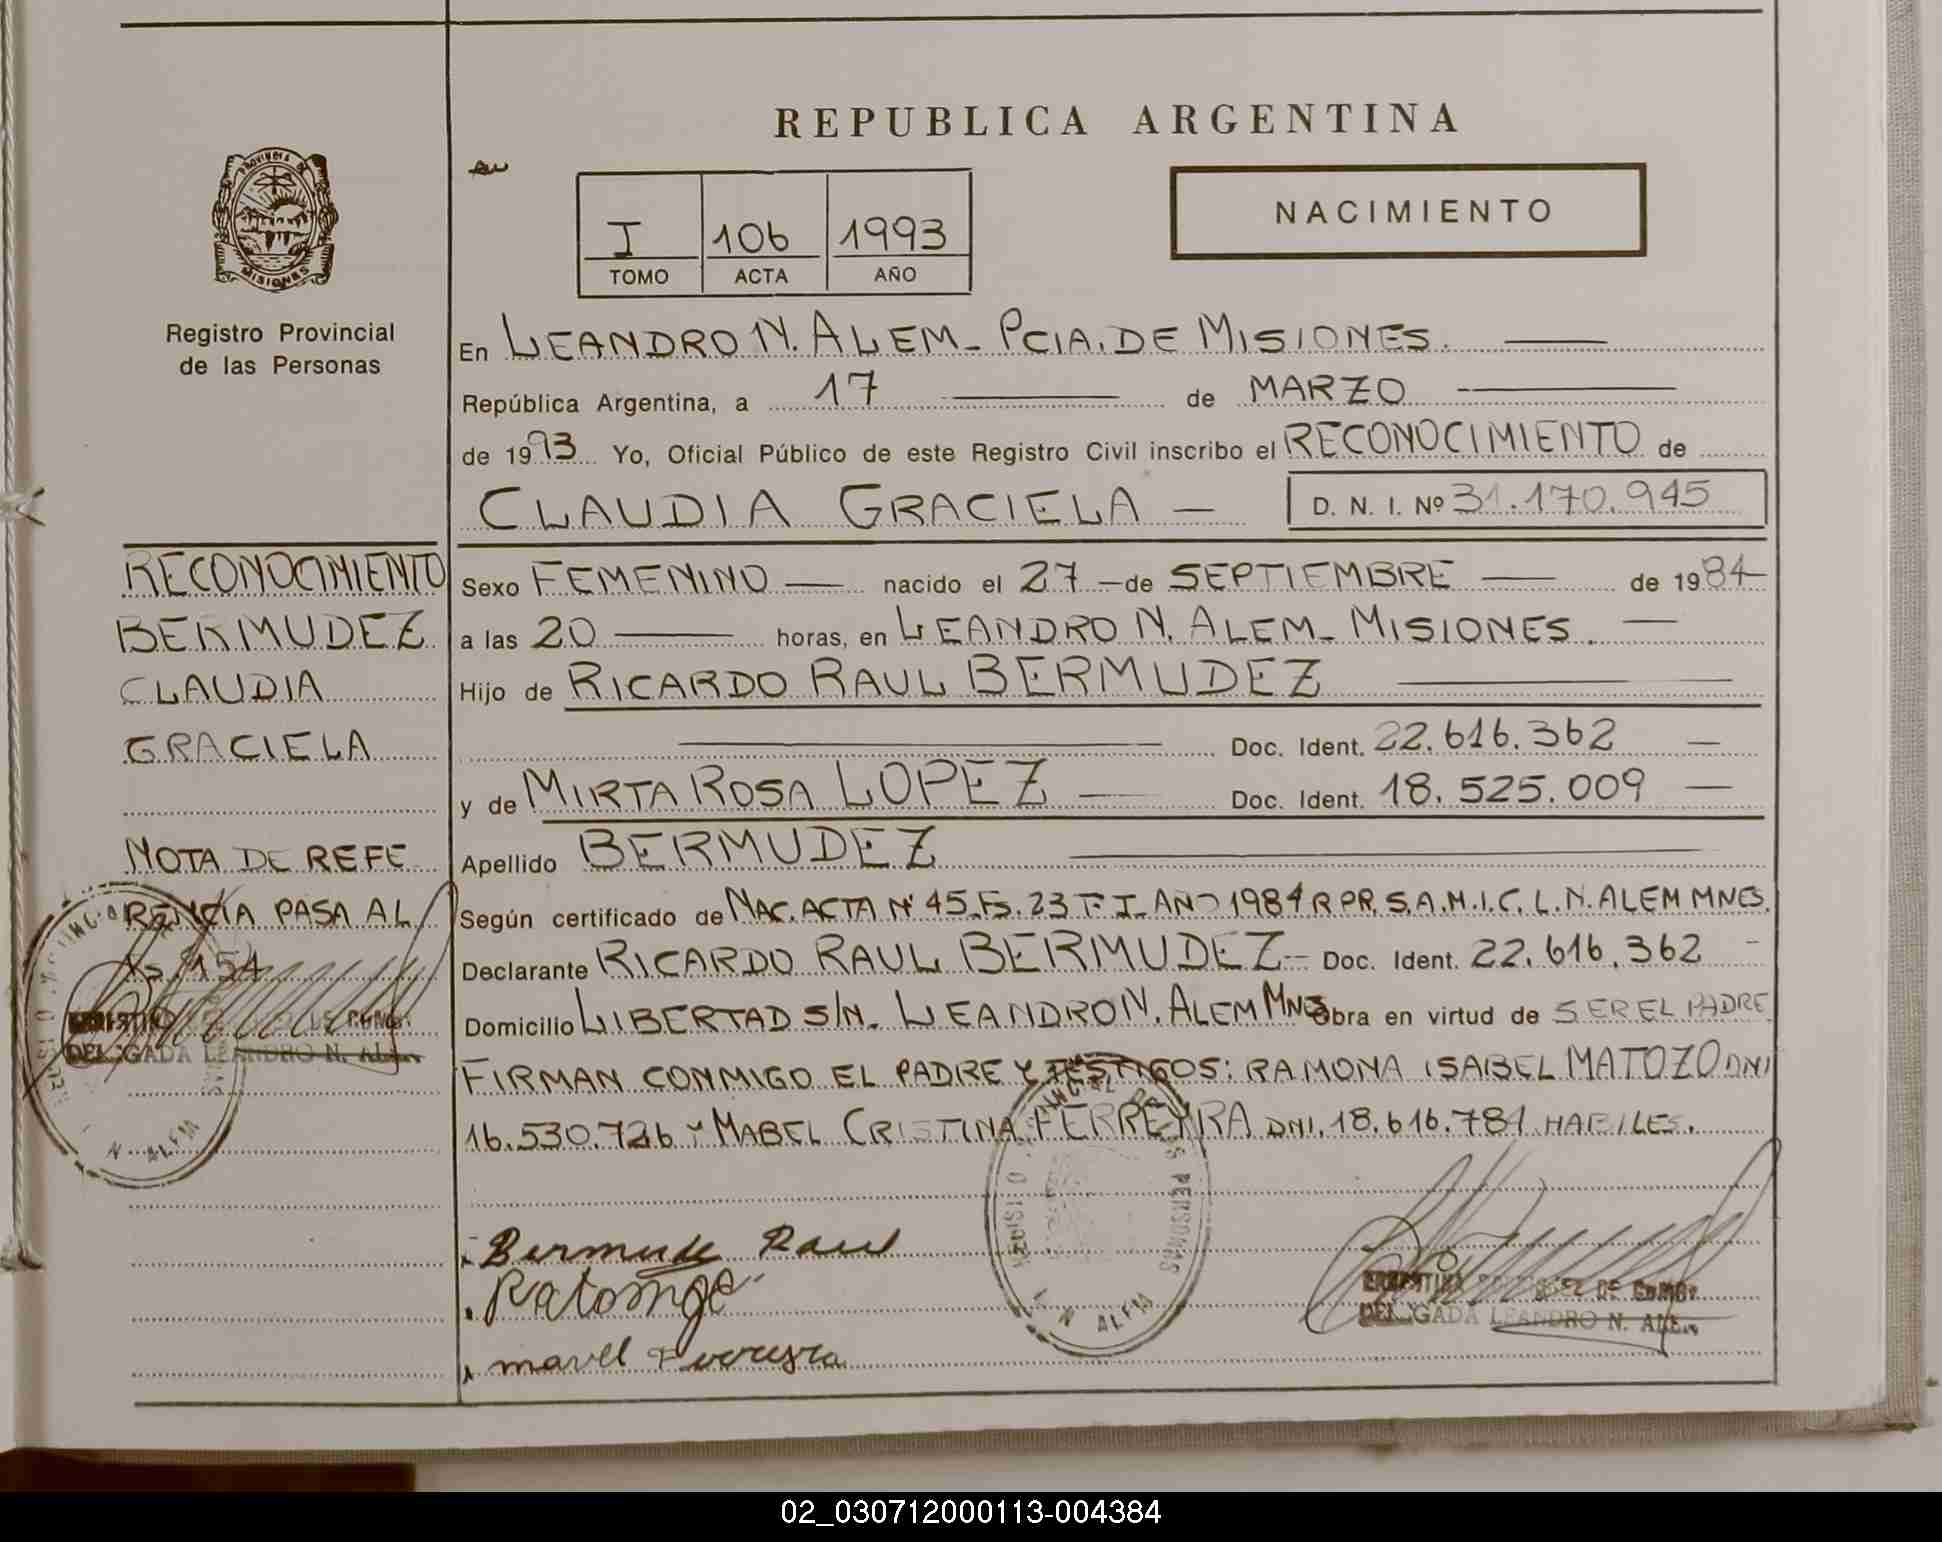 REPUBLICA ARGENTINA
NACIMIENTO
I 106 1993
TOMO ACTA AÑO
PROVINCIA DE
MISIONES
Registro Provincial
de las Personas
En LEANDRO N. ALEM_ PCIA. DE MISIONES.
República Argentina, a 17 de MARZO
de 1993 Yo, Oficial Público de este Registro Civil inscribo el RECONOCIMIENTO de
CLAUDIA GRACIELA — D. N. I. Nº 31.170.945
RECONOCIMIENTO
BERMUDEZ
CLAUDIA
GRACIELA
NOTA DE REFE
RENCIA PASA AL
Fs. 154
Sexo FEMENINO — nacido el 27 — de SEPTIEMBRE — de 1984
a las 20 — horas, en LEANDRO N. ALEM_ MISIONES. —
Hijo de RICARDO RAUL BERMUDEZ
Doc. Ident. 22.616.362 —
y de MIRTA ROSA LOPEZ — Doc. Ident. 18.525.009 —
Apellido BERMUDEZ
Según certificado de NAC. ACTA Nº 45. Fs. 23 T. I. AÑO 1984 R PR. S.A.M.I.C. L. N. ALEM MNES.
Declarante RICARDO RAUL BERMUDEZ – Doc. Ident. 22.616.362 -
Domicilio LIBERTAD S/N_ LEANDRO N. ALEM MNES Obra en virtud de SER EL PADRE
FIRMAN CONMIGO EL PADRE Y TESTIGOS: RAMONA ISABEL MATOZO DNI
16.530.726 Y MABEL CRISTINA FERREYRA DNI. 18.616.781 HABILES.
Bermude Raul
mavel Ferreyra
DELEGADA LEANDRO N. ALEM
DELEGADA LEANDRO N. ALEM
PERSONAS
N ALEM
N. ALEM
02_030712000113-004384